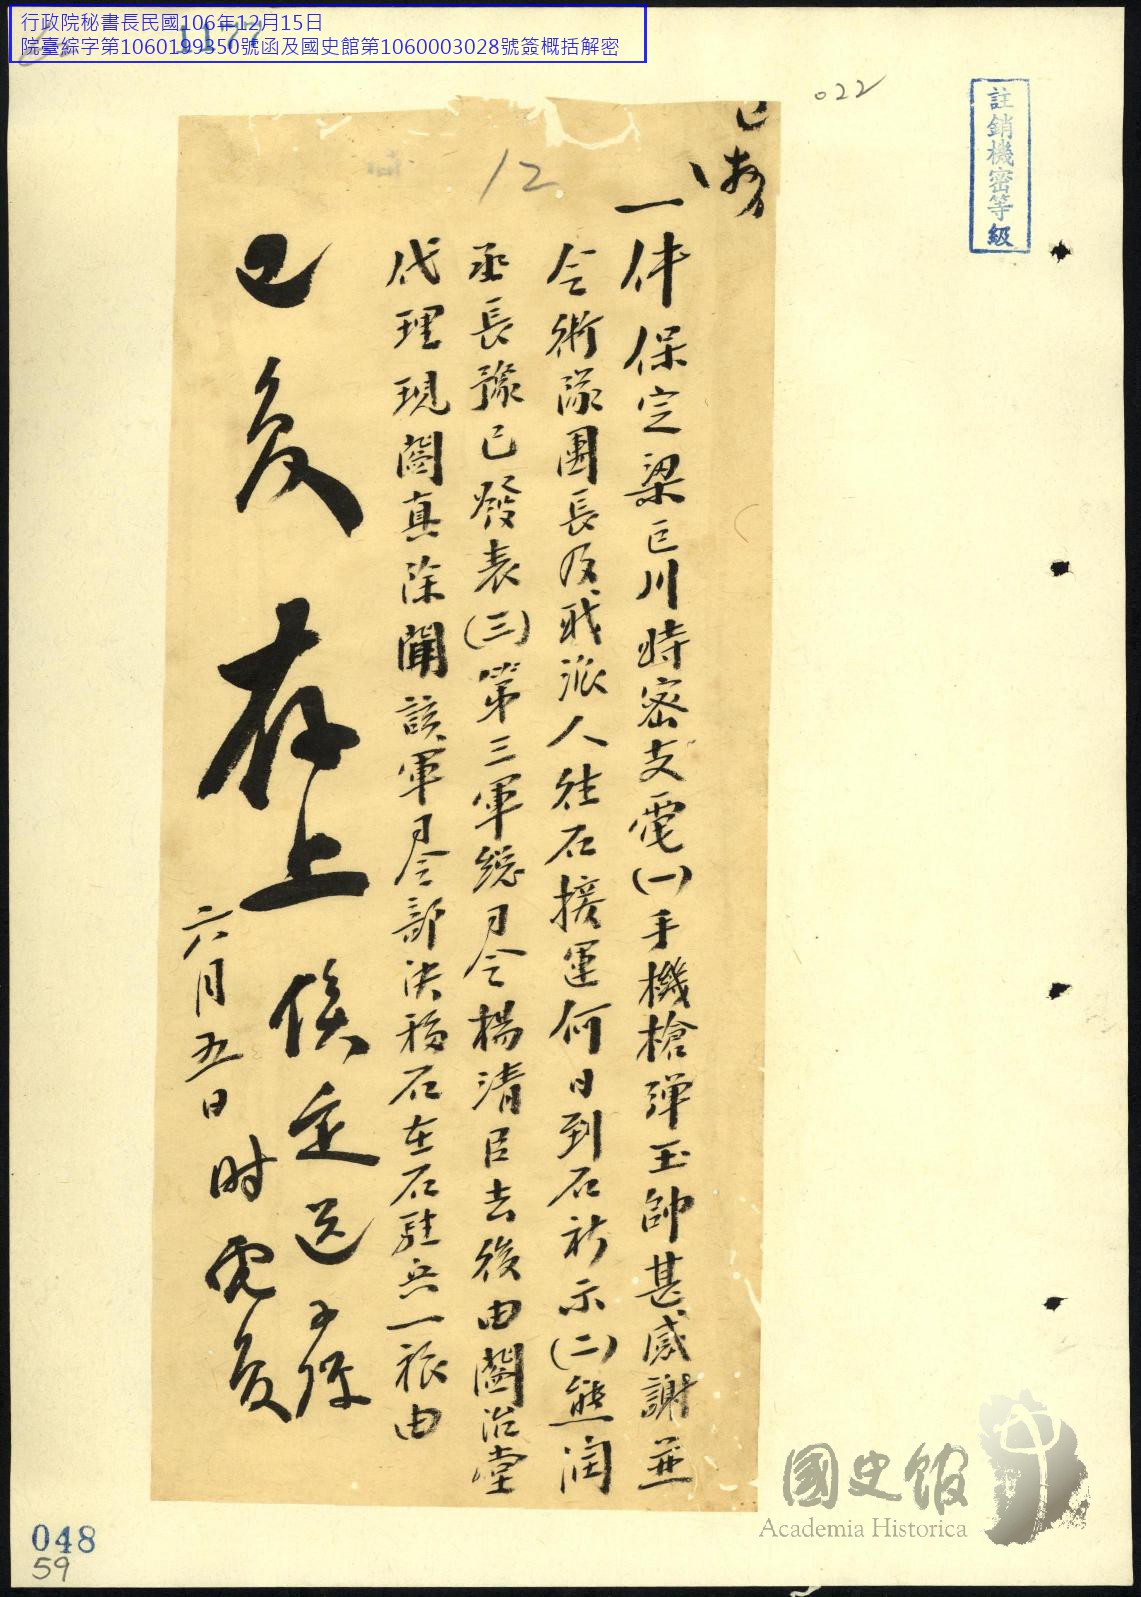 行政院秘書長民國106年12月15日
院臺綜字第1060199350號函及國史館第1060003028號簽概括解密
1177
022
註銷機密等級
12
一件保定梁巨川時密支電(一)手機槍彈玉帥甚感謝並
令衛隊團長及戢派人往石接運何日到石祈示(二)熊潤
丞長豫已發表(三)第三軍總司令楊清臣去後由閻治堂
代理現閻真除聞該軍司令部決移石在石駐兵一旅由
已复
存上
候定送
六月五日
时電复
048
59
國史館
Academia Historica